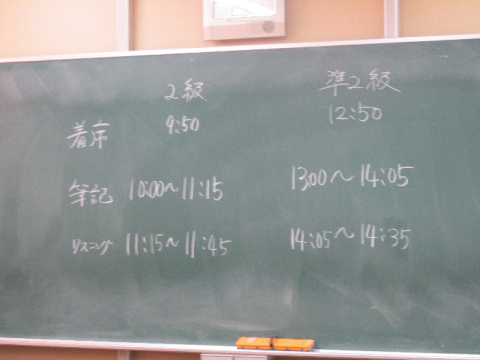 2級 準2級
着席 9:50 12:50
筆記 10:00～11:15 13:00～14:05
リスニング 11:15～11:45 14:05～14:35